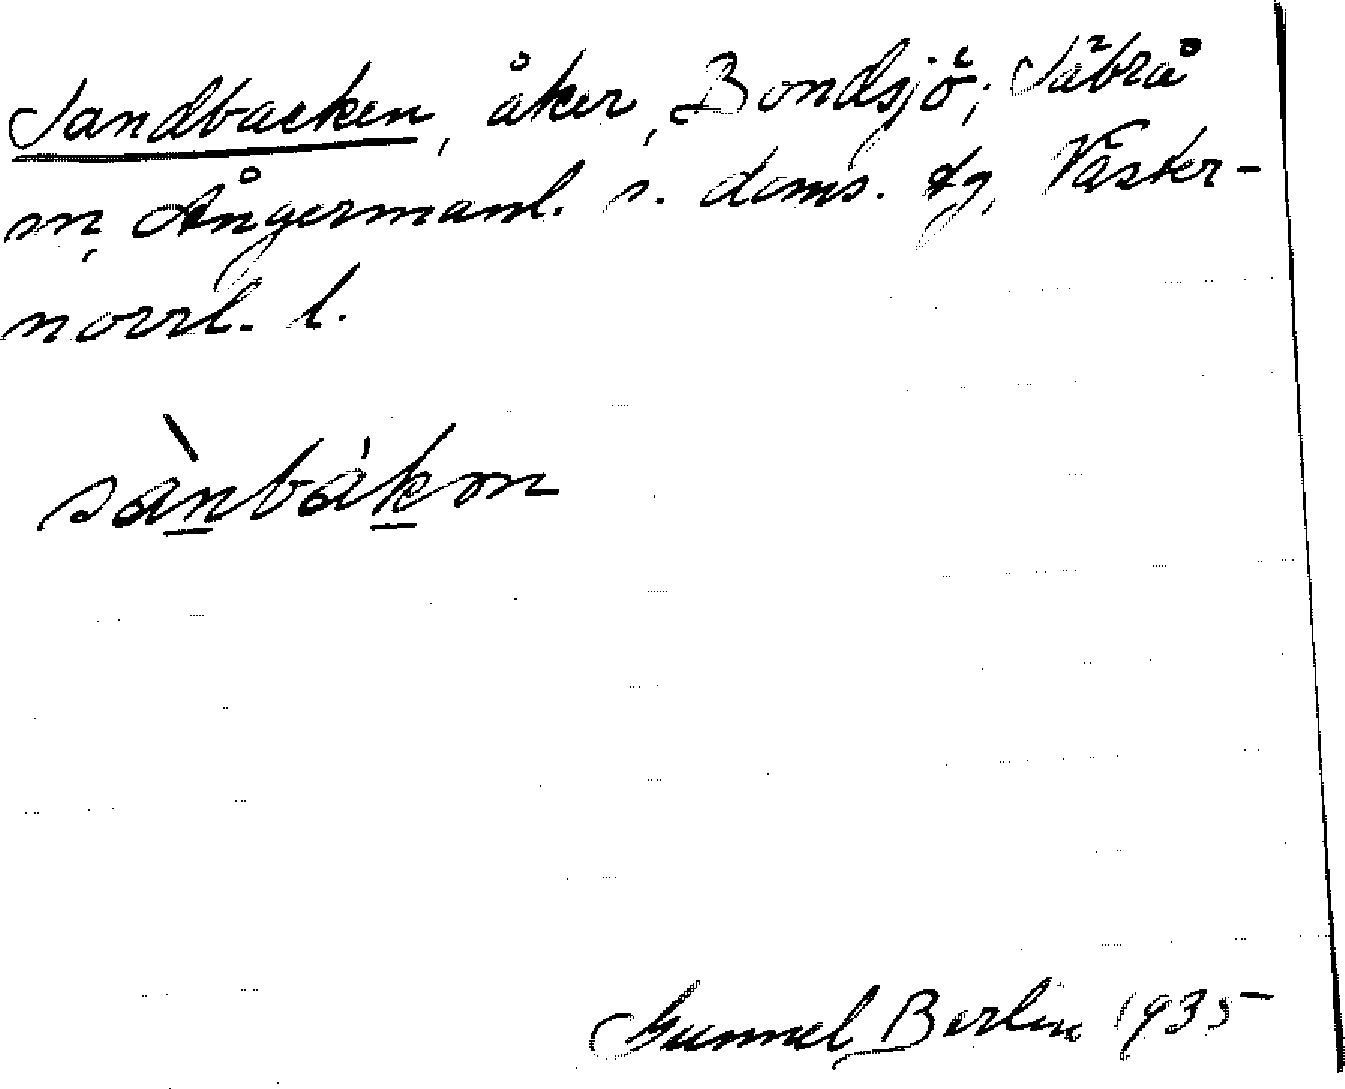 Sandbacken, åker, Bondsjö; Säbrå
sn, Ångermanl. s. doms. tg, Väster-
norrl. l.
sànbákɔn
Gunnel Berlin 1935